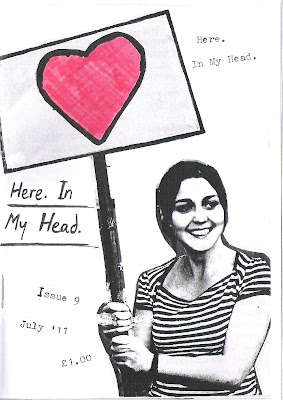 Here.
In My Head.
Here. In
My Head.
Issue 9
July '11
£1.00